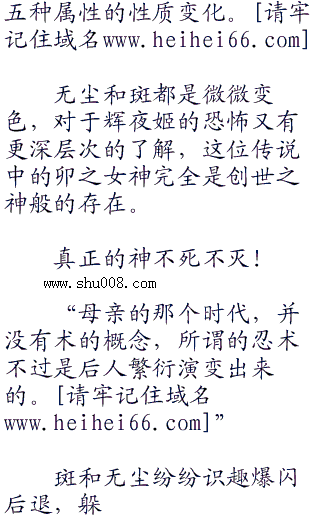 五种属性的性质变化。[请牢
记住域名www.heihei66.com]
无尘和斑都是微微变
色，对于辉夜姬的恐怖又有
更深层次的了解，这位传说
中的卯之女神完全是创世之
神般的存在。
真正的神不死不灭！
www.shu008.com
“母亲的那个时代，并
没有术的概念，所谓的忍术
不过是后人繁衍演变出来
的。[请牢记住域名
www.heihei66.com]”
斑和无尘纷纷识趣爆闪
后退，躲